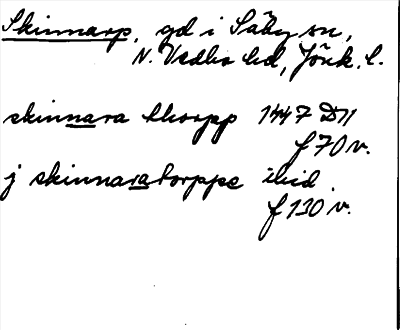 Skinnarp, gd i Säby sn,
N. Vedbo hd, Jönk. l.
skinnara thorpp 1447 D11
f 70 v.
j skinnaratorppe ibid.
f 130 v.